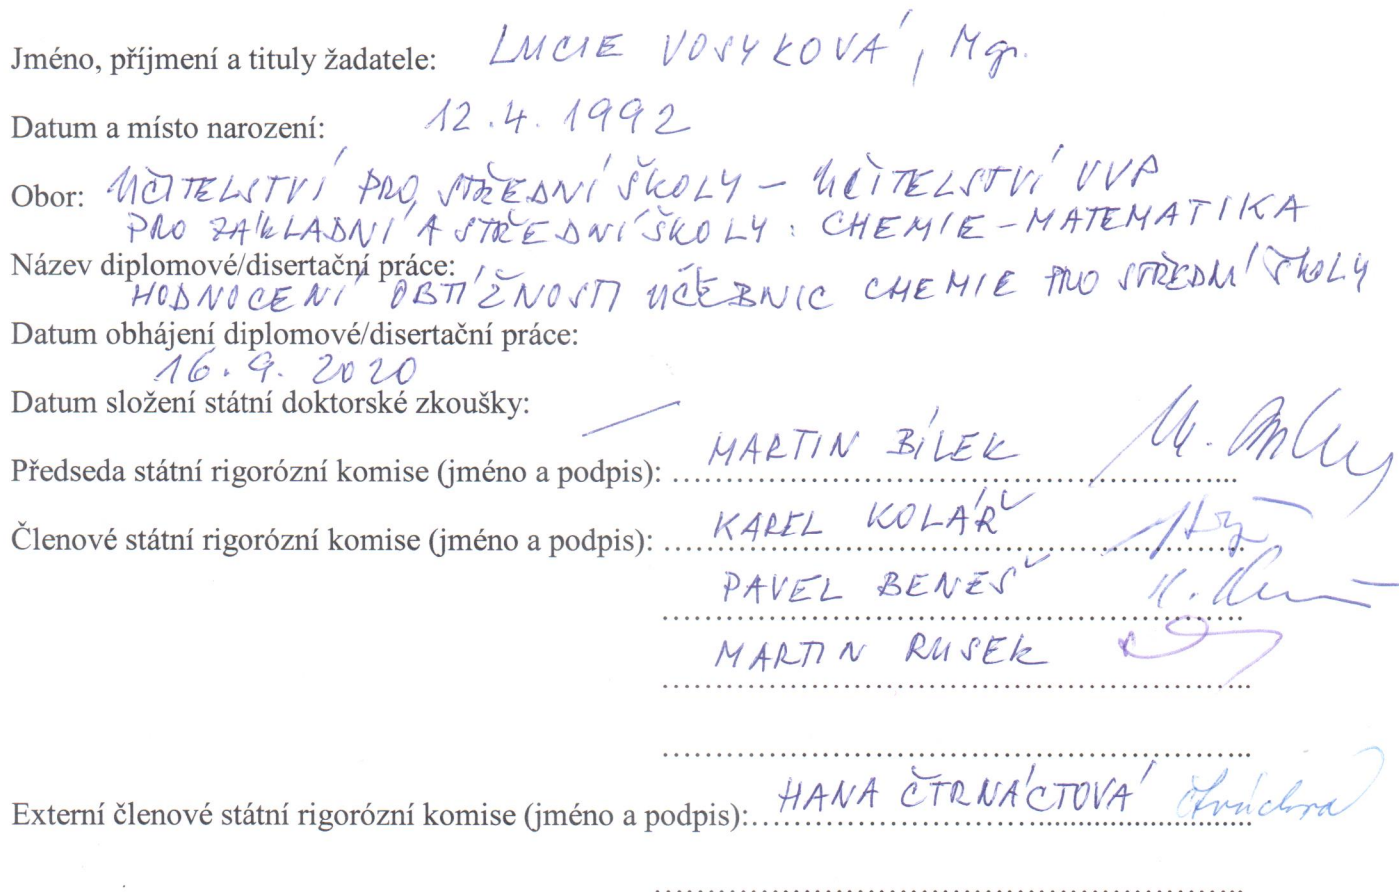 Jméno, příjmení a tituly žadatele: LUCIE VOSYKOVÁ, Mgr.
Datum a místo narození: 12.4.1992
Obor: UČITELSTVÍ PRO STŘEDNÍ ŠKOLY – UČITELSTVÍ VVP
PRO ZÁKLADNÍ A STŘEDNÍ ŠKOLY: CHEMIE – MATEMATIKA
Název diplomové/disertační práce:
HODNOCENÍ OBTÍŽNOSTI UČEBNIC CHEMIE PRO STŘEDNÍ ŠKOLY
Datum obhájení diplomové/disertační práce:
16.9.2020
Datum složení státní doktorské zkoušky: —
Předseda státní rigorózní komise (jméno a podpis): MARTIN BÍLEK
Členové státní rigorózní komise (jméno a podpis): KAREL KOLÁŘ
PAVEL BENEŠ
MARTIN RUSEK
Externí členové státní rigorózní komise (jméno a podpis): HANA ČTRNÁCTOVÁ